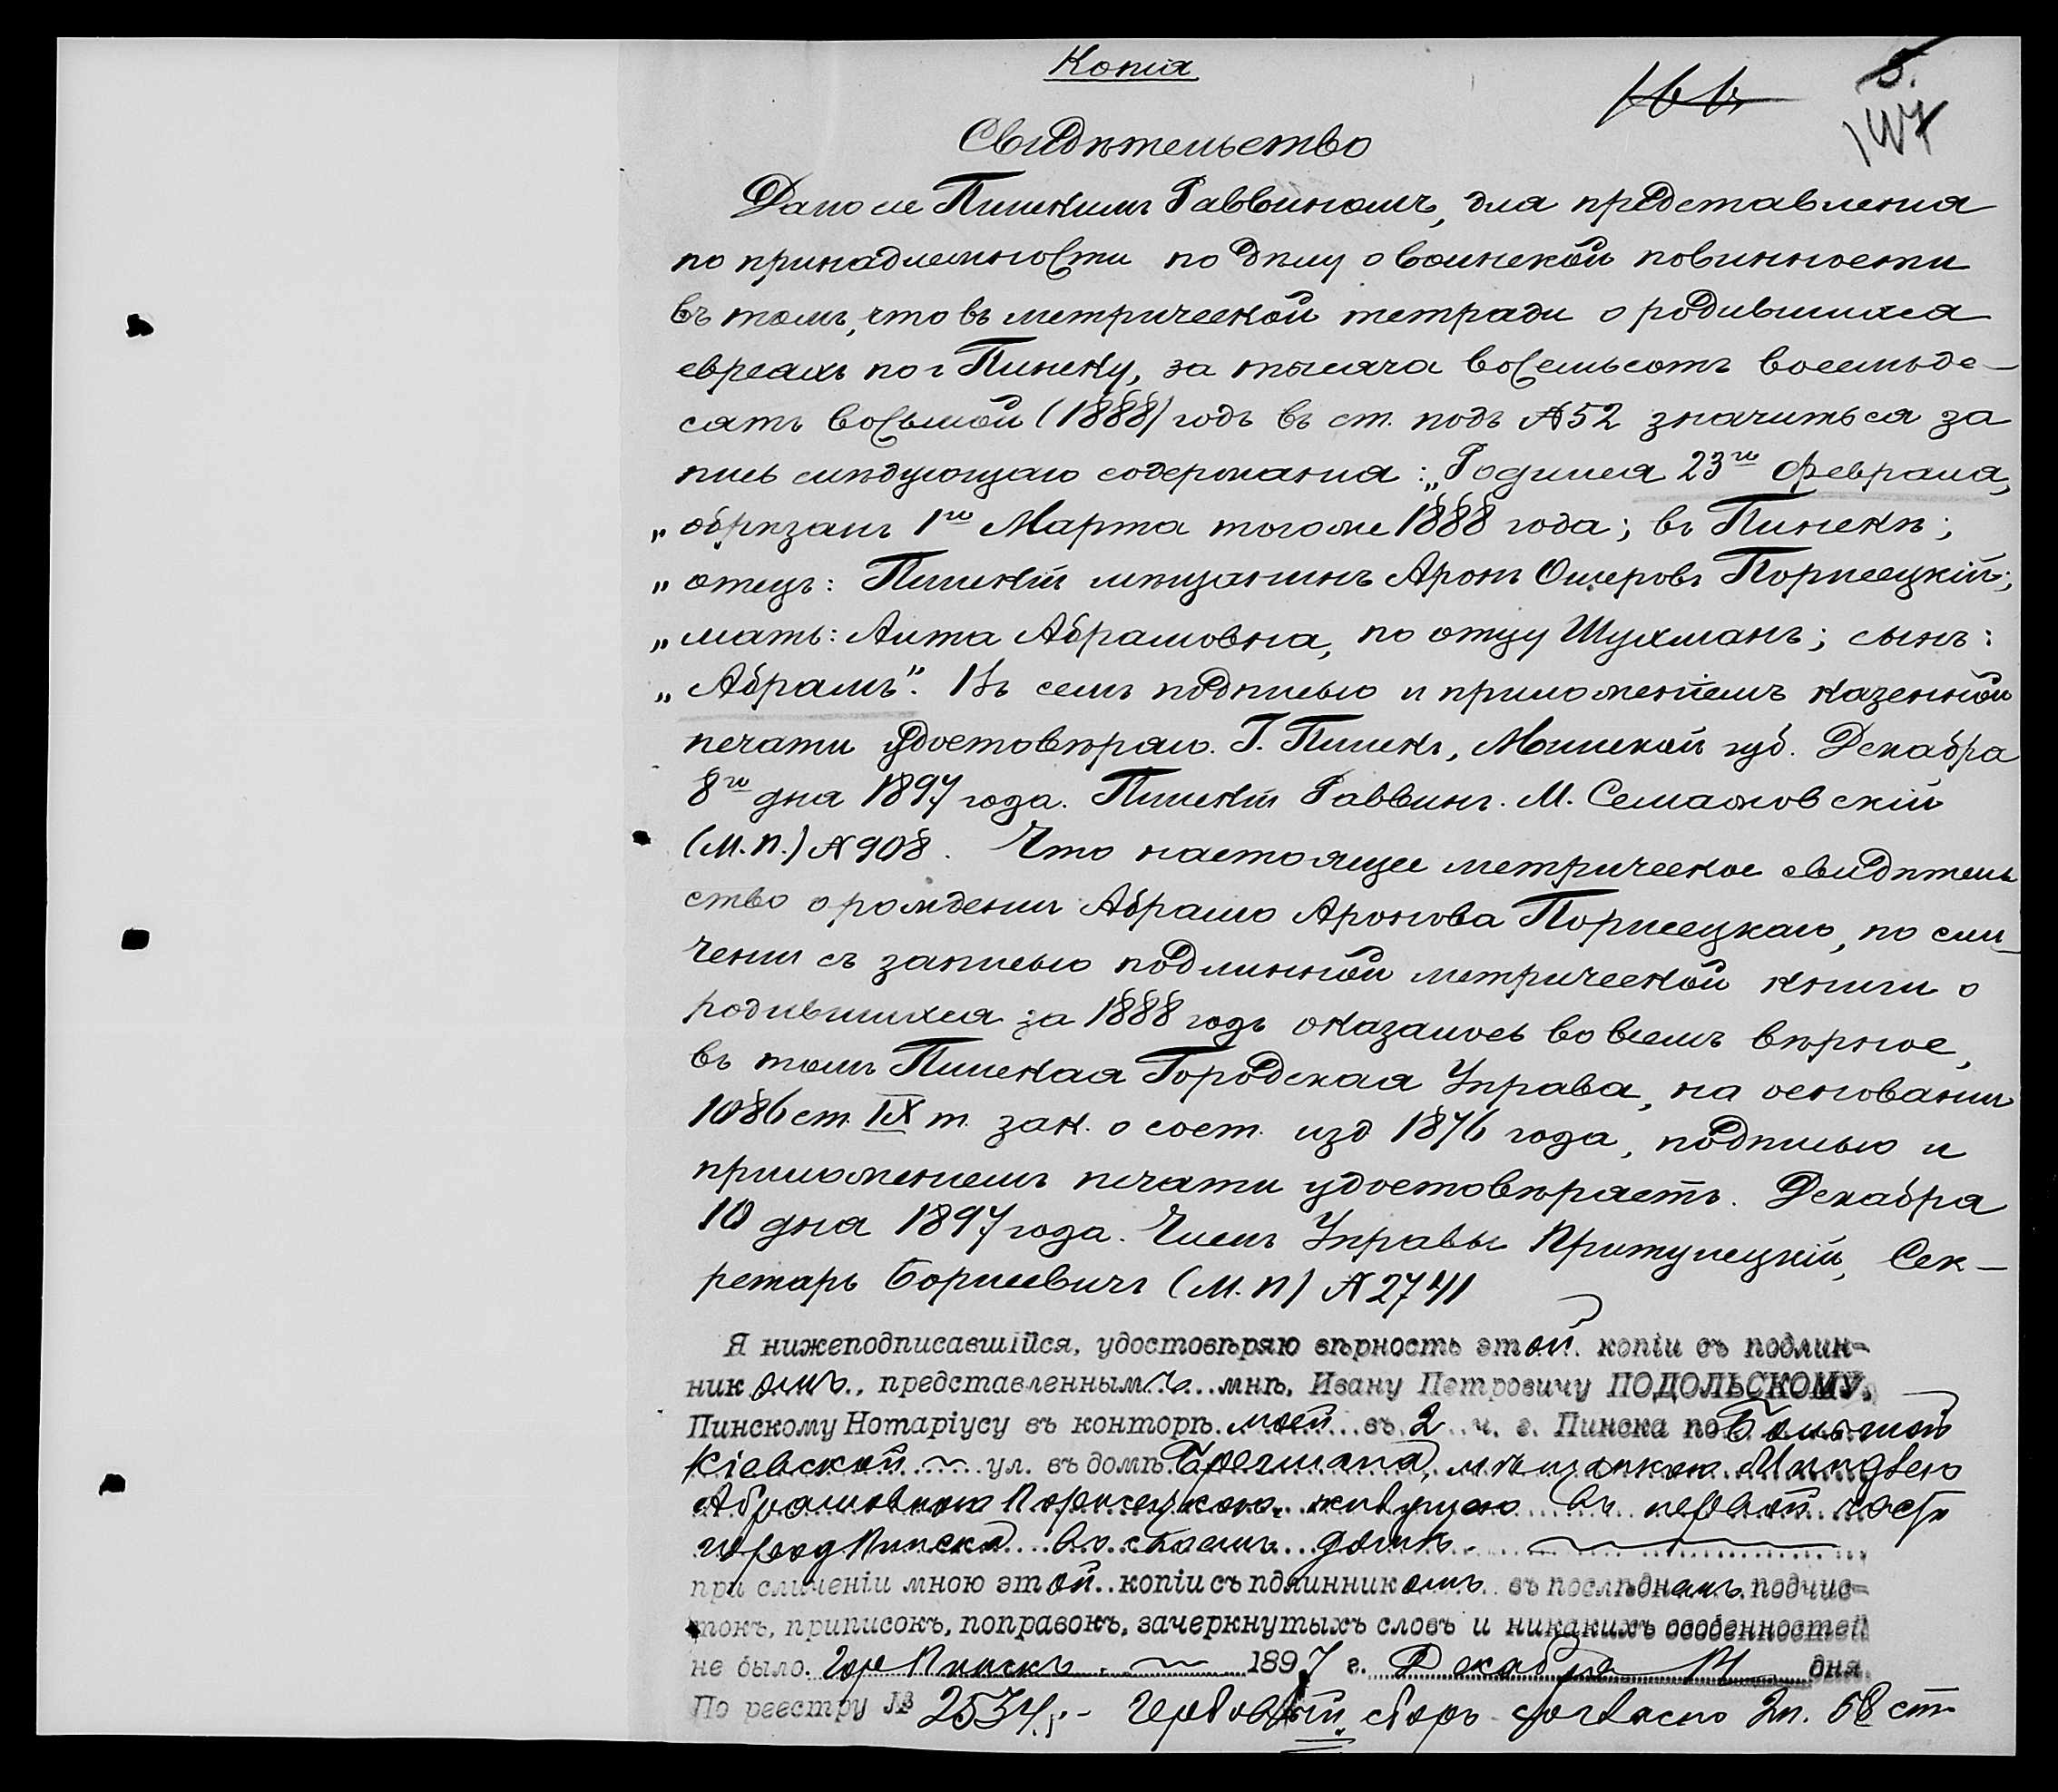 Копія
166
5.
147
Свидѣтельство
Дано сіе Пинскимъ Раввиномъ, для представленія
по принадлежности по дѣлу о воинской повинности
въ томъ, что въ метрической тетради о родившихся
евреяхъ по г Пинску, за тысяча восемьсотъ восемьде-
сятъ восьмой (1888) годъ въ ст. подъ №52 значиться за
пись слѣдующаго содержанія: „Родился 23го Февраля,
„обрѣзанъ 1го Марта тогоже 1888 года; въ Пинскѣ;
„отецъ: Пинскій мѣщанинъ Аронъ Ошеровъ Порисецкій;
„мать: Лита Абрамовна, по отцу Шухманъ; сынъ:
„Абрамъ". Въ семъ подписью и приложеніемъ казенной
печати удостовѣряю. Г. Пинскъ, Минской губ. Декабря
8го дня 1897 года. Пинскій Раввинъ. М. Семажовскій
(М.П.) №908. Что настоящее метрическое свидѣтель
ство о рожденіи Абрама Аронова Порисецкаго, по сли-
ченіи съ записью подлинной метрической книги о
родившихся за 1888 годъ оказалось во всемъ вѣрное,
въ томъ Пинская Городская Управа, на основаніи
1086 ст. IX т. зак. о сост. изд 1876 года, подписью и
приложеніемъ печати удостовѣряетъ. Декабря
10 дня 1897 года. Членъ Управы Притулецкій, Сек-
ретарь Борисевичъ (М.П) №2741
Я нижеподписавшійся, удостовѣряю вѣрность этой копіи съ подлин-
никомъ, представленнымъ мнѣ, Ивану Петровичу ПОДОЛЬСКОМУ,
Пинскому Нотаріусу въ конторѣ моей въ 2 ч. г. Пинска по Большой
Кіевской ул. въ домѣ Бергмана, мѣщанкою
Абрамовною Порисецкою, живущею въ первой части
город Пинска въ своемъ домѣ.
при сличеніи мною этой копіи съ пдлинникомъ въ послѣднемъ подчис-
токъ, приписокъ, поправокъ, зачеркнутыхъ словъ и никакихъ особенностей
не было. Гор Пинскъ 1897 г. Декабря 14 дня.
По реестру № 2534.- Гербовый сборъ согласно 2п. 58 ст